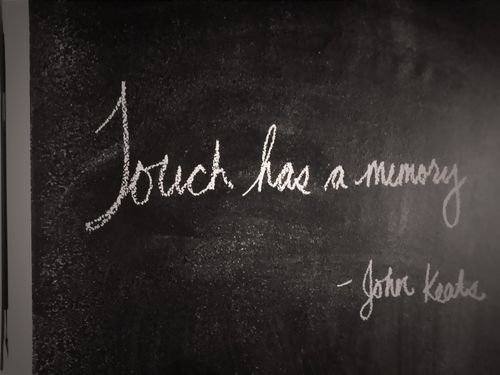 Touch has a memory
- John Keats